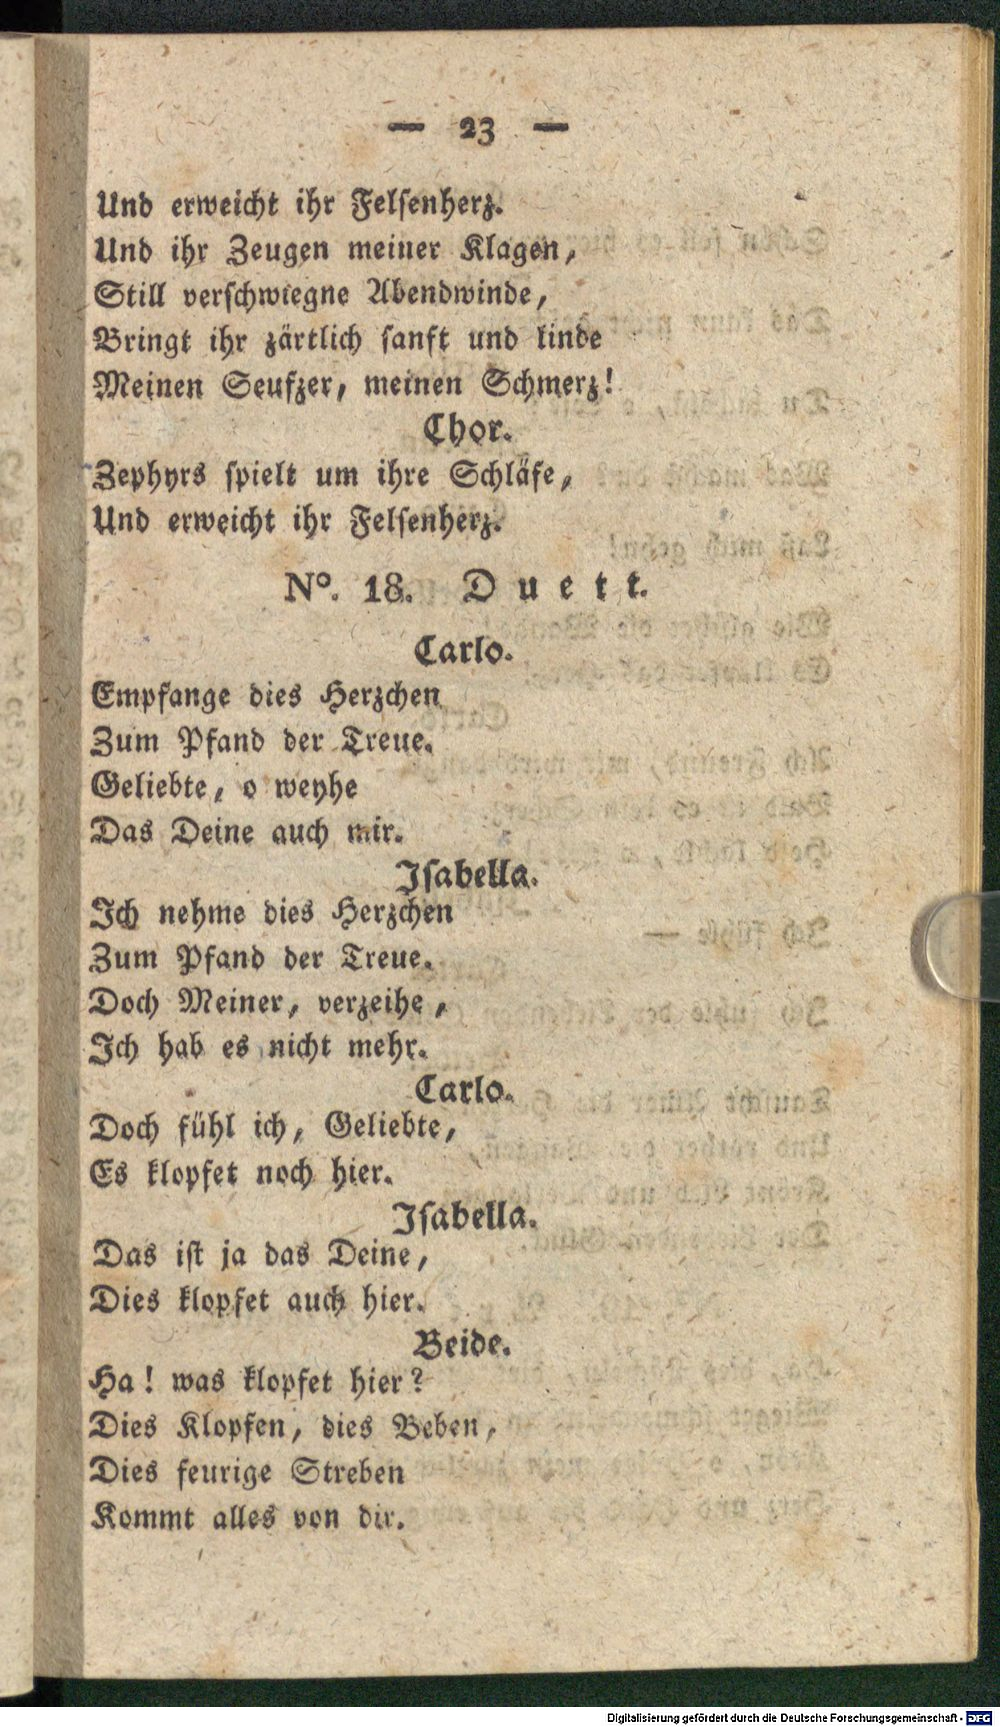 — 23 —
Und erweicht ihr Felsenherz.
Und ihr Zeugen meiner Klagen,
Still verschwiegne Abendwinde,
Bringt ihr zärtlich sanft und linde
Meinen Seufzer, meinen Schmerz!
Chor.
Zephyrs spielt um ihre Schläfe,
Und erweicht ihr Felsenherz.
No. 18. Duett.
Carlo.
Empfange dies Herzchen
Zum Pfand der Treue.
Geliebte, o weyhe
Das Deine auch mir.
Isabella.
Ich nehme dies Herzchen
Zum Pfand der Treue.
Doch Meiner, verzeihe,
Ich hab es nicht mehr.
Carlo.
Doch fühl ich, Geliebte,
Es klopfet noch hier.
Isabella.
Das ist ja das Deine,
Dies klopfet auch hier.
Beide.
Ha! was klopfet hier?
Dies Klopfen, dies Beben,
Dies feurige Streben
Kommt alles von dir.
Digitalisierung gefördert durch die Deutsche Forschungsgemeinschaft - DFG